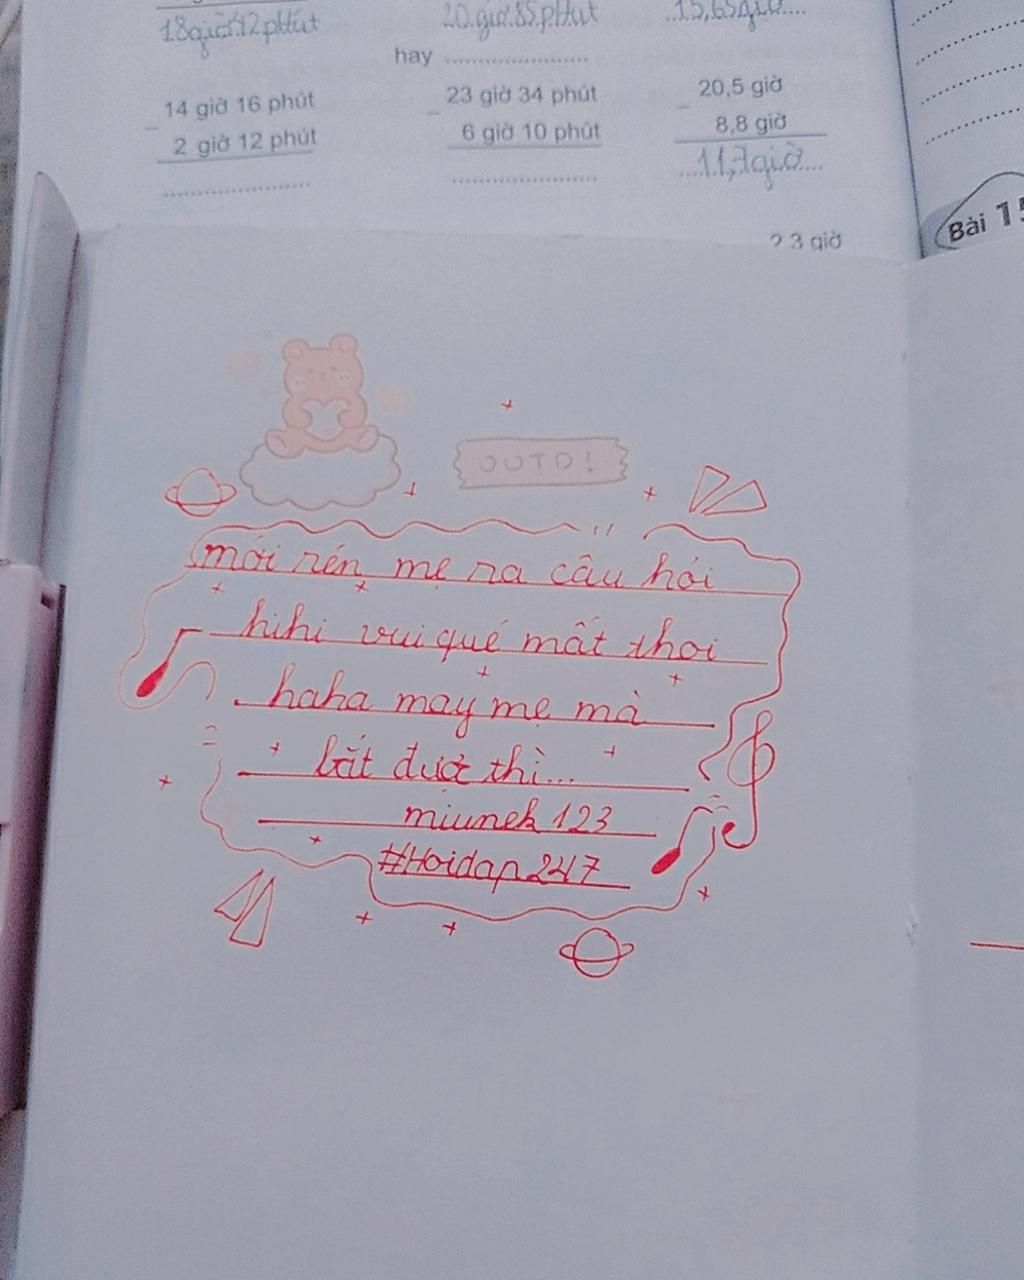 18giờ42phút
20.giờ.85.phút
..15,65giờ....
hay ........................
14 giờ 16 phút
23 giờ 34 phút
20,5 giờ
_
_
_
2 giờ 12 phút
6 giờ 10 phút
8,8 giờ
.........................
.........................
....11,7giờ....
Bài 15
2,3 giờ
OUTD!
mới rén mẹ ra câu hỏi
hihi vui qué mất thoi
haha may mẹ mà
bắt đượt thì...
miunek 123
#Hoidap247